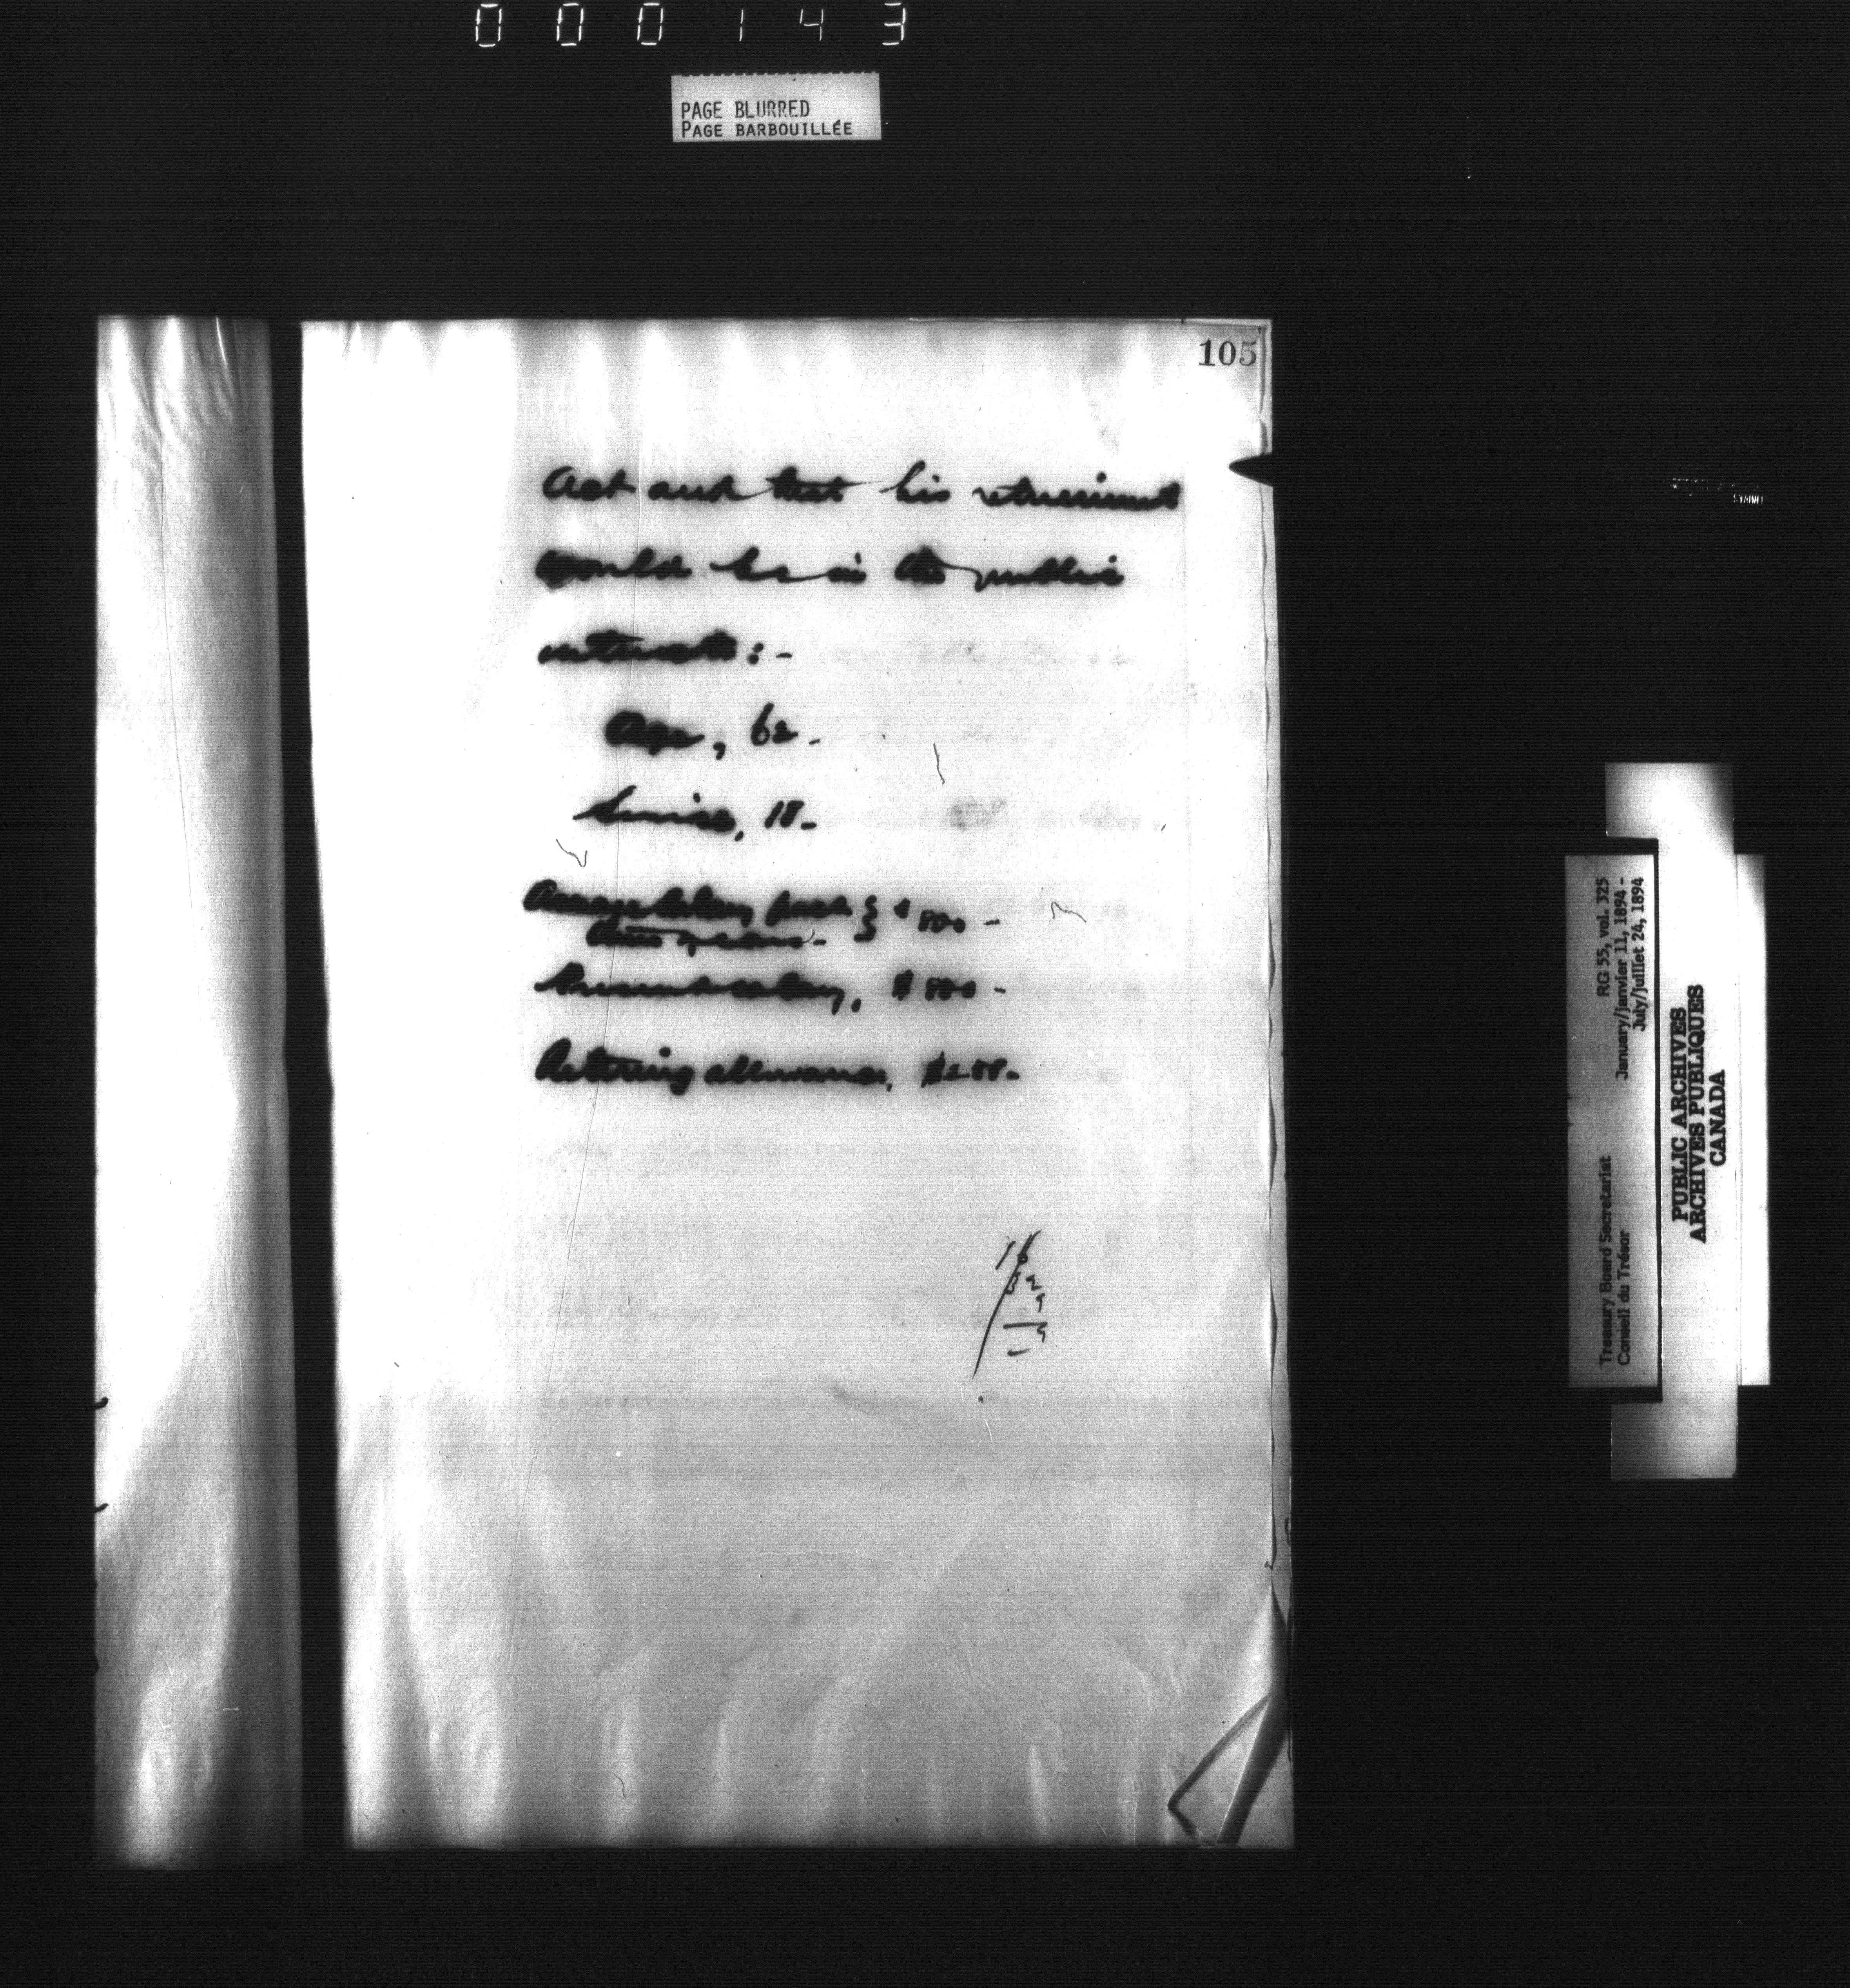 000143
PAGE BLURRED
PAGE BARBOUILLÉE
105
Act and that his retirement
would be in the public
interests:-
Age, 62-
Service, 18-
Average salary past } $800-
three years-
Present salary, $800-
Retiring allowance, $288-
16
Treasury Board Secretariat RG 55, vol. 325
Conseil du Trésor January/janvier 11, 1894 -
July/juillet 24, 1894
PUBLIC ARCHIVES
ARCHIVES PUBLIQUES
CANADA